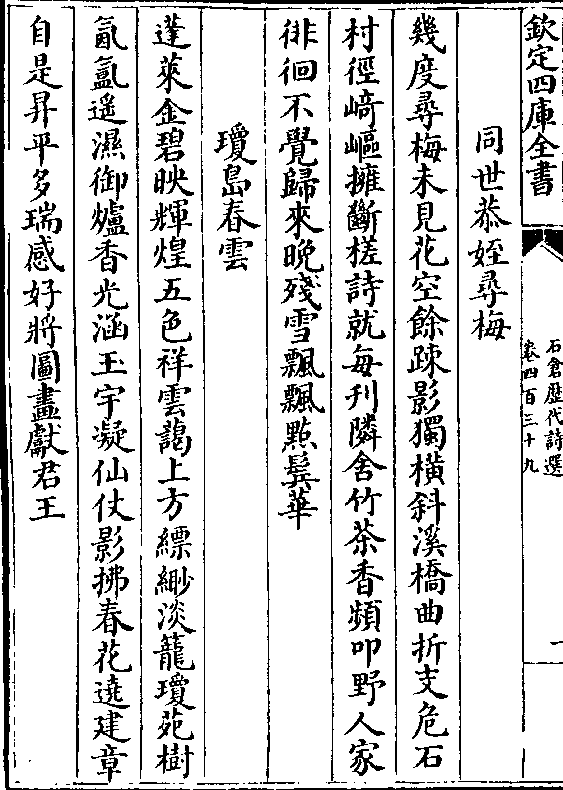 欽定四庫全書
石倉歴代詩選
卷四百三十九
一
同世恭姪尋梅
幾度尋梅未見花空餘疎影獨橫斜溪橋曲折支危石
村徑崎嶇擁斷槎詩就每刋隣舍竹茶香頻叩野人家
徘徊不覺歸來晚殘雪飄飄㸃鬂華
瓊島春雲
蓬萊金碧映輝煌五色祥雲藹上方縹緲淡籠瓊苑樹
氤氲遥濕御爐香光涵玉宇凝仙仗影拂春花遶建章
自是昇平多瑞感好將圖畫獻君王